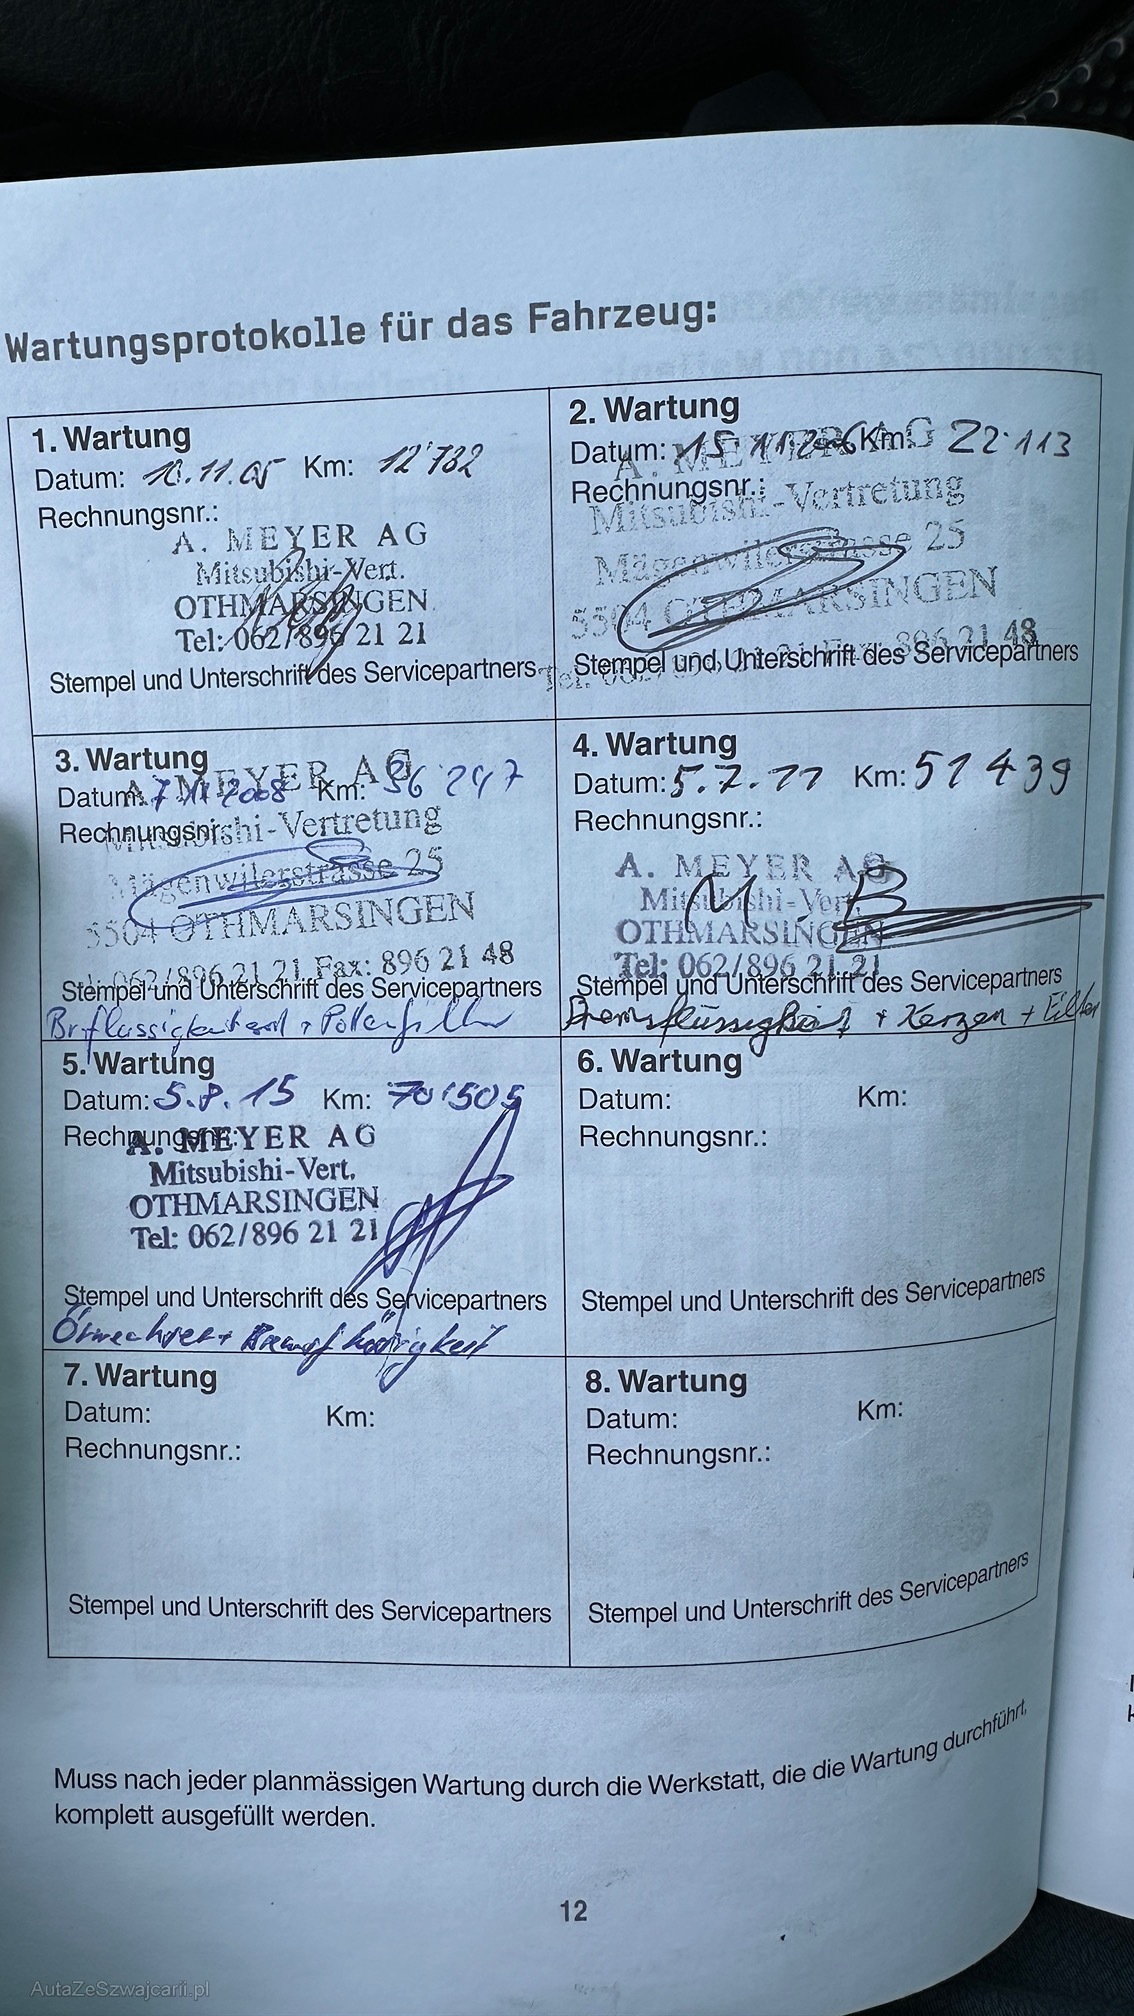 Wartungsprotokolle für das Fahrzeug:
1. Wartung
Datum: 10.11.05 Km: 12'732
Rechnungsnr.:
A. MEYER AG
Mitsubishi-Vert.
OTHMARSINGEN
Tel: 062/896 21 21
Stempel und Unterschrift des Servicepartners
2. Wartung
Datum: 15 11 2006 Km: 22'113
Rechnungsnr.:
A. MEYER AG
Mitsubishi-Vertretung
Mägenwilerstrasse 25
5504 OTHMARSINGEN
Fax: 896 21 48
Stempel und Unterschrift des Servicepartners
3. Wartung
Datum: 7 11 2008 Km: 36'247
Rechnungsnr.:
A. MEYER AG
Mitsubishi-Vertretung
Mägenwilerstrasse 25
5504 OTHMARSINGEN
062/896 21 21 Fax: 896 21 48
Stempel und Unterschrift des Servicepartners
+ Pollenfilter
4. Wartung
Datum: 5.7.11 Km: 51439
Rechnungsnr.:
A. MEYER AG
Mitsubishi-Vert.
OTHMARSINGEN
Tel: 062/896 21 21
Stempel und Unterschrift des Servicepartners
Bremsflüssigkeit + Kerzen + Filter
5. Wartung
Datum: 5.8.15 Km: 70'505
Rechnungsnr.:
A. MEYER AG
Mitsubishi-Vert.
OTHMARSINGEN
Tel: 062/896 21 21
Stempel und Unterschrift des Servicepartners
Ölwechsel +
6. Wartung
Datum: Km:
Rechnungsnr.:
Stempel und Unterschrift des Servicepartners
7. Wartung
Datum: Km:
Rechnungsnr.:
Stempel und Unterschrift des Servicepartners
8. Wartung
Datum: Km:
Rechnungsnr.:
Stempel und Unterschrift des Servicepartners
Muss nach jeder planmässigen Wartung durch die Werkstatt, die die Wartung durchführt,
komplett ausgefüllt werden.
12
AutaZeSzwajcarii.pl